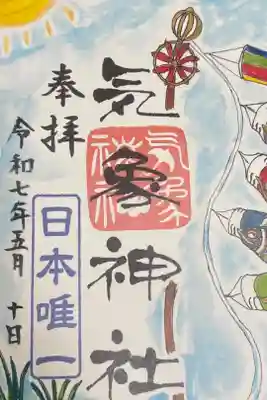 奉拝
気象神社
気象神社
日本唯一
令和七年五月十日